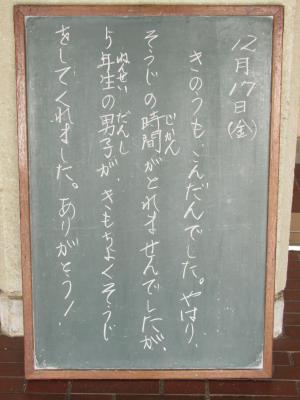 12月17日(金)
きのうも、こんだんでした。やはり、
そうじの時間がとれませんでしたが、
じかん
5年生の男子が、きもちよくそうじ
ねんせい だんし
をしてくれました。ありがとう！